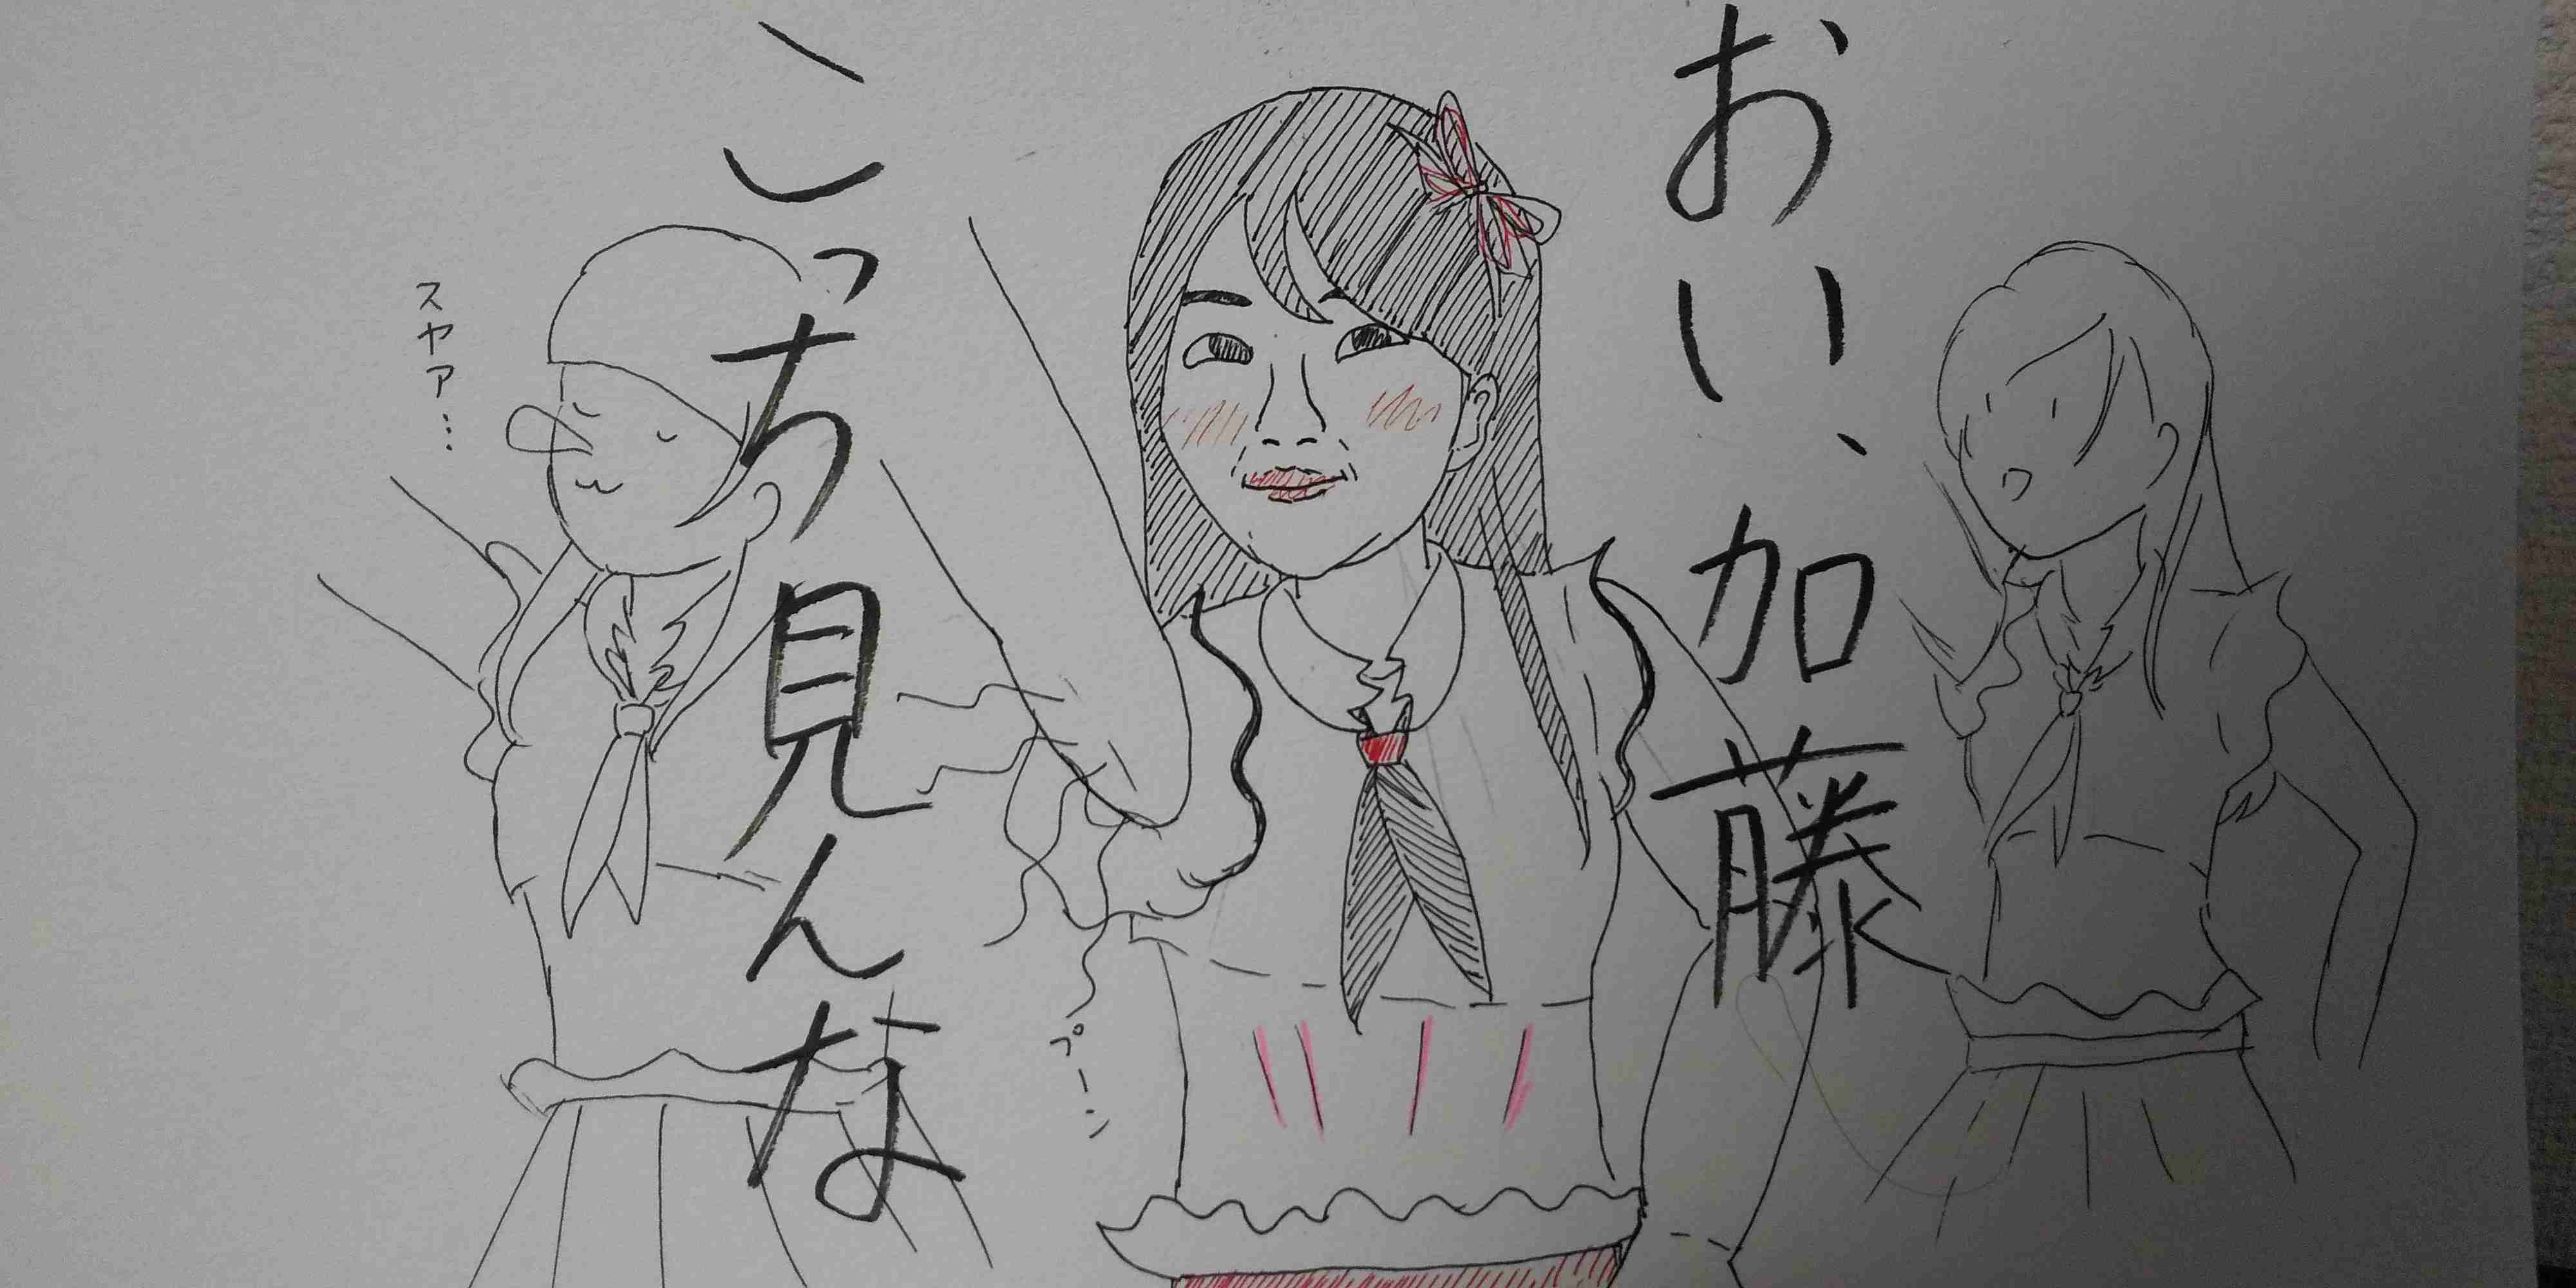 おい、加藤
こっち見んな
プーン
スヤァ…